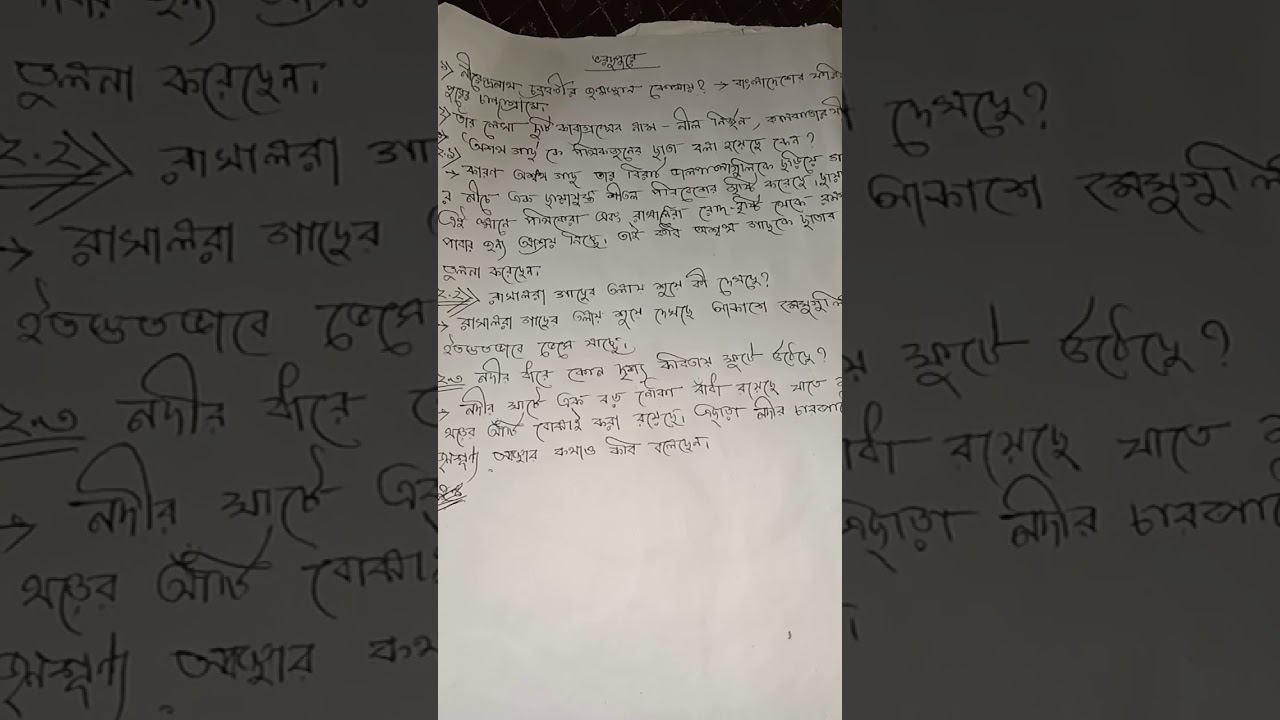 ভরদুপুরে
১) নীরেন্দ্রনাথ চক্রবর্তীর জন্মস্থান কোথায়? → বাংলাদেশের ফরিদ
পুরের চান্দ্রগ্রামে।
২) তাঁর লেখা দুটি কাব্যগ্রন্থের নাম – নীল নির্জন, কলকাতার যী
২.১) অশ্বত্থ গাছ কে পথিকজনের ছাতা বলা হয়েছে কেন?
→ কারণ অশ্বত্থ গাছ তার বিরাট ডালপালাগুলিকে ছড়িয়ে তা
র নীচে এক ছায়াযুক্ত শীতল পরিবেশের সৃষ্টি করেছে।
এই খানে পথিকেরা এবং রাখালেরা রোদ-বৃষ্টি থেকে রক্ষা
পাবার জন্য আশ্রয় নিচ্ছে। তাই কবি অশ্বত্থ গাছকে ছাতার
তুলনা করেছেন।
২.২) রাখালরা গাছের তলায় শুয়ে কী দেখছে?
→ রাখালরা গাছের তলায় শুয়ে দেখছে আকাশে মেঘগুলি
ইতস্ততভাবে ভেসে যাচ্ছে।
২.৩ নদীর ধারে কোন দৃশ্য কবিতায় ফুটে উঠেছে?
→ নদীর ঘাটে এক বড় নৌকা বাঁধা রয়েছে যাতে
খড়ের আঁটি বোঝাই করা রয়েছে। এছাড়া নদীর চারপাশে
জনশূন্য অবস্থার কথাও কবি বলেছেন।